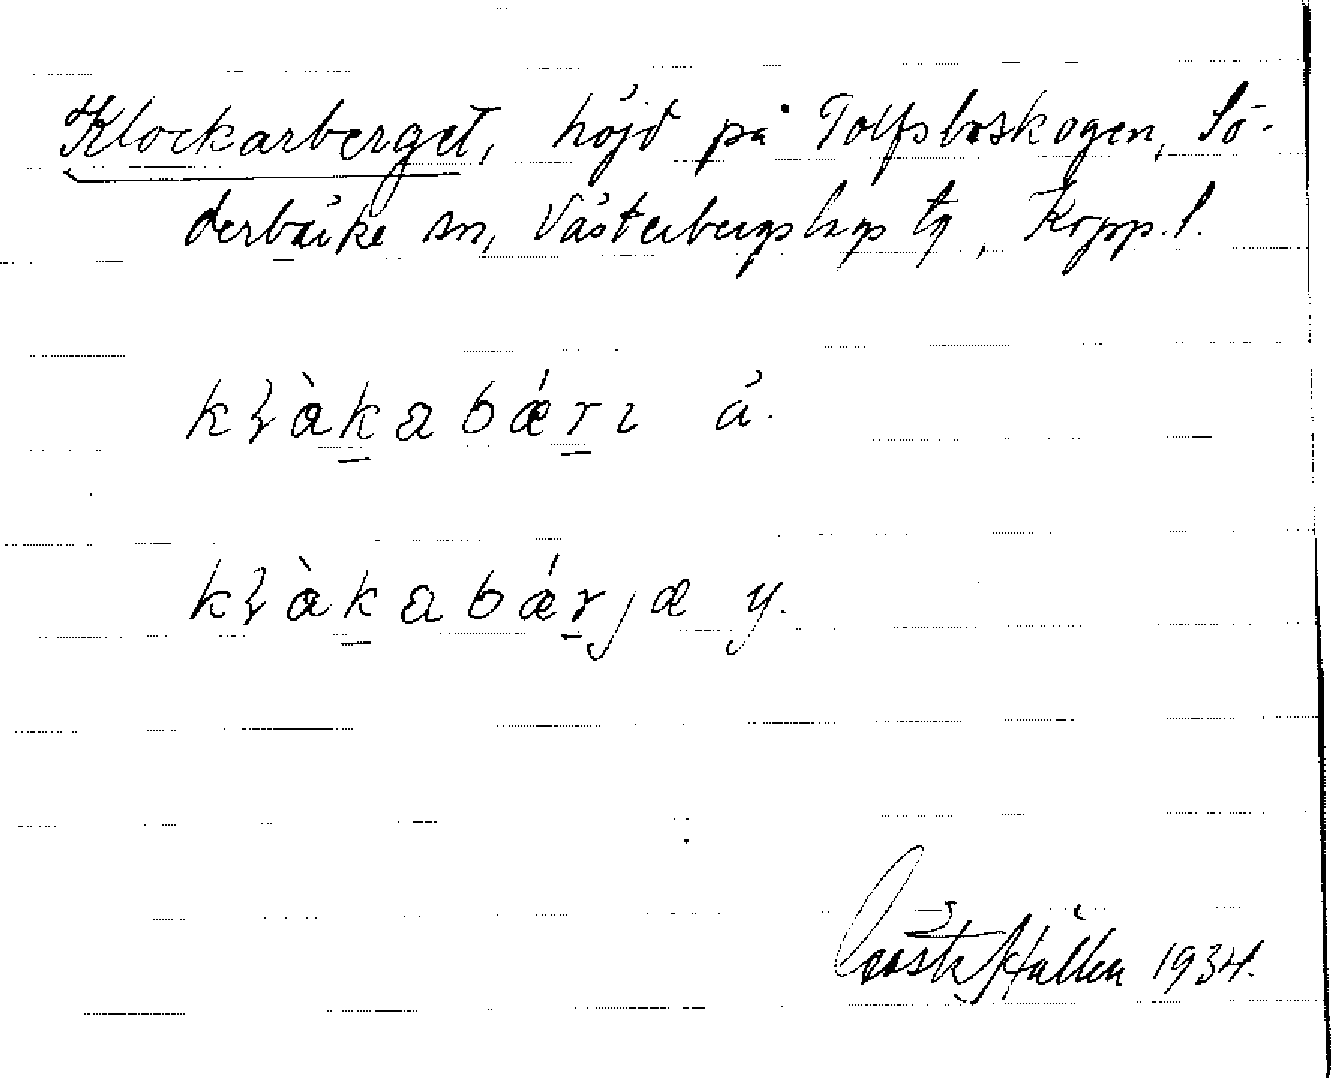 Klockarberget, höjd på Tolfsboskogen, Sö-
derbärke sn, Västerbergslags tg, Kopp. l.
kɭàk̲abǽr̲ɩ ä.
kɭàk̲abǽr̲jæ y.
1934.